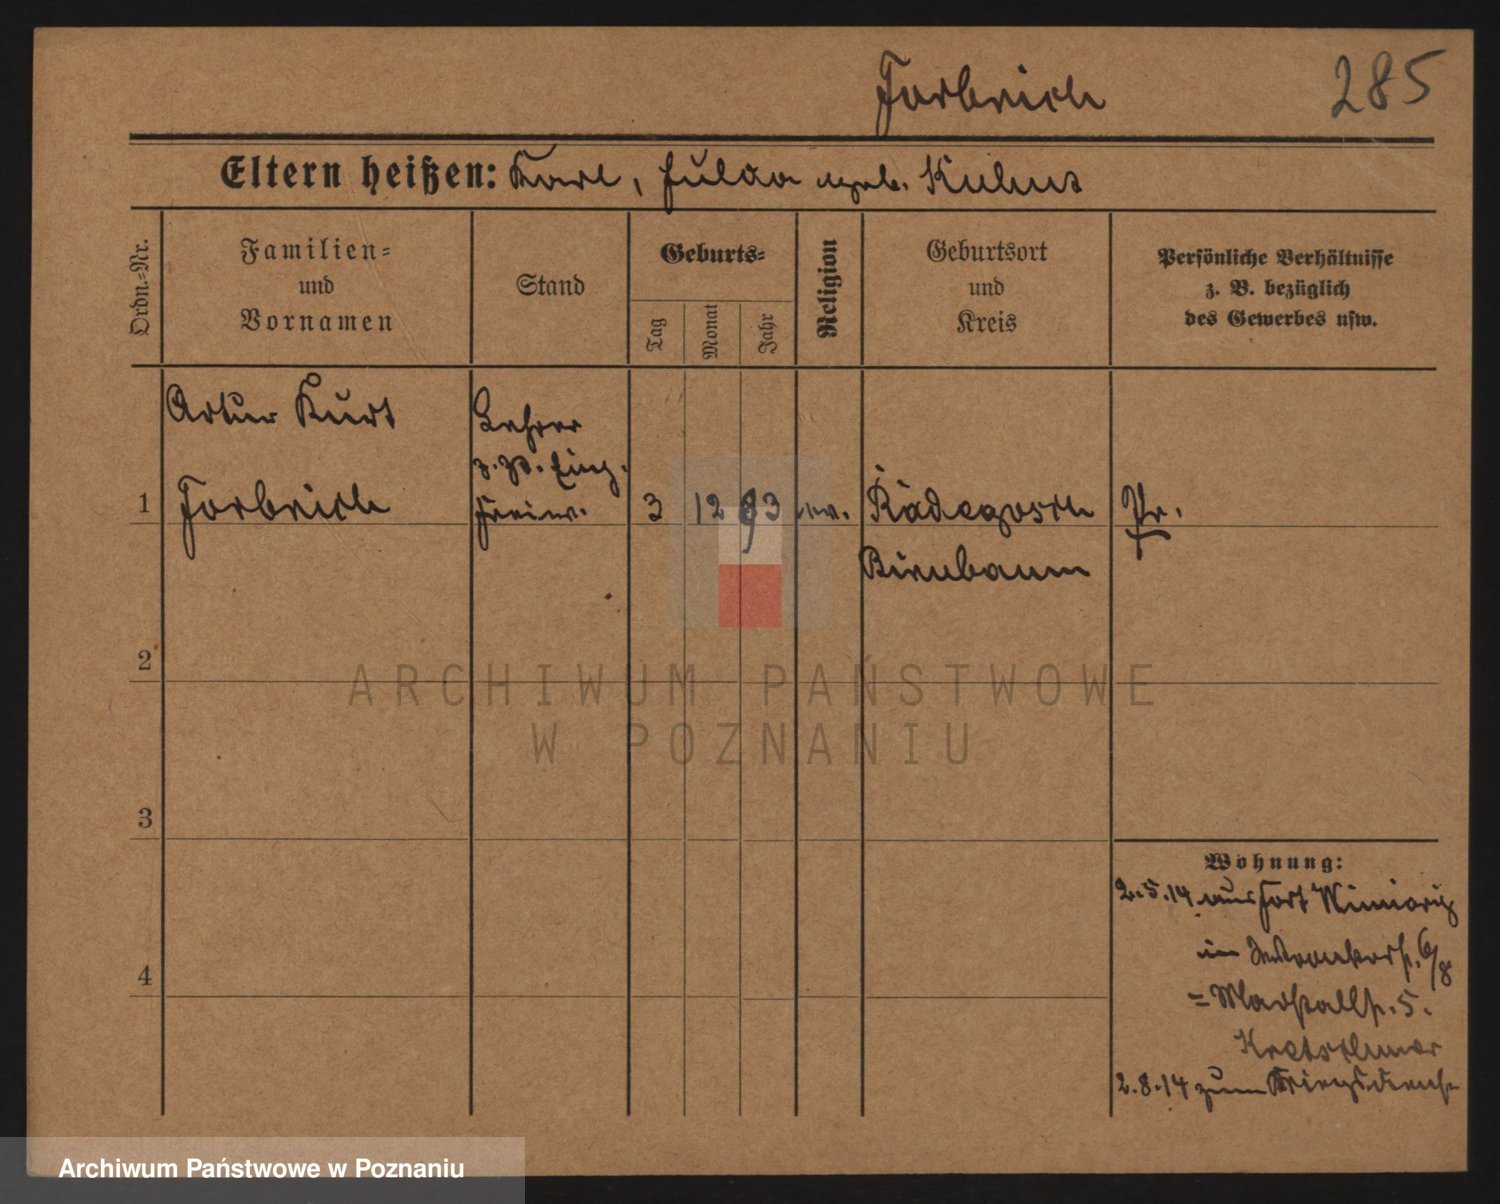 Forbrich
285
Eltern heißen: Karl, Hulda geb. Kuhnt
Ordn.=Nr.
Familien=
und
Vornamen
Stand
Geburts=
Tag
Monat
Jahr
Religion
Geburtsort
und
Kreis
Persönliche Verhältnisse
z. B. bezüglich
des Gewerbes usw.
Artur Kurt
Forbrich
Lehrer
z. Zt. Einj.
Freiw.
1
3
12
93
ev.
Radegosch
Birnbaum
Pr.
2
3
4
Wohnung:
2.5.14 aus Fort
in Wronkerstr. 6/8
= Marstallstr. 5.
Kretschmer
2.8.14 zum Kriegsdienst
ARCHIWUM PAŃSTWOWE
W POZNANIU
Archiwum Państwowe w Poznaniu